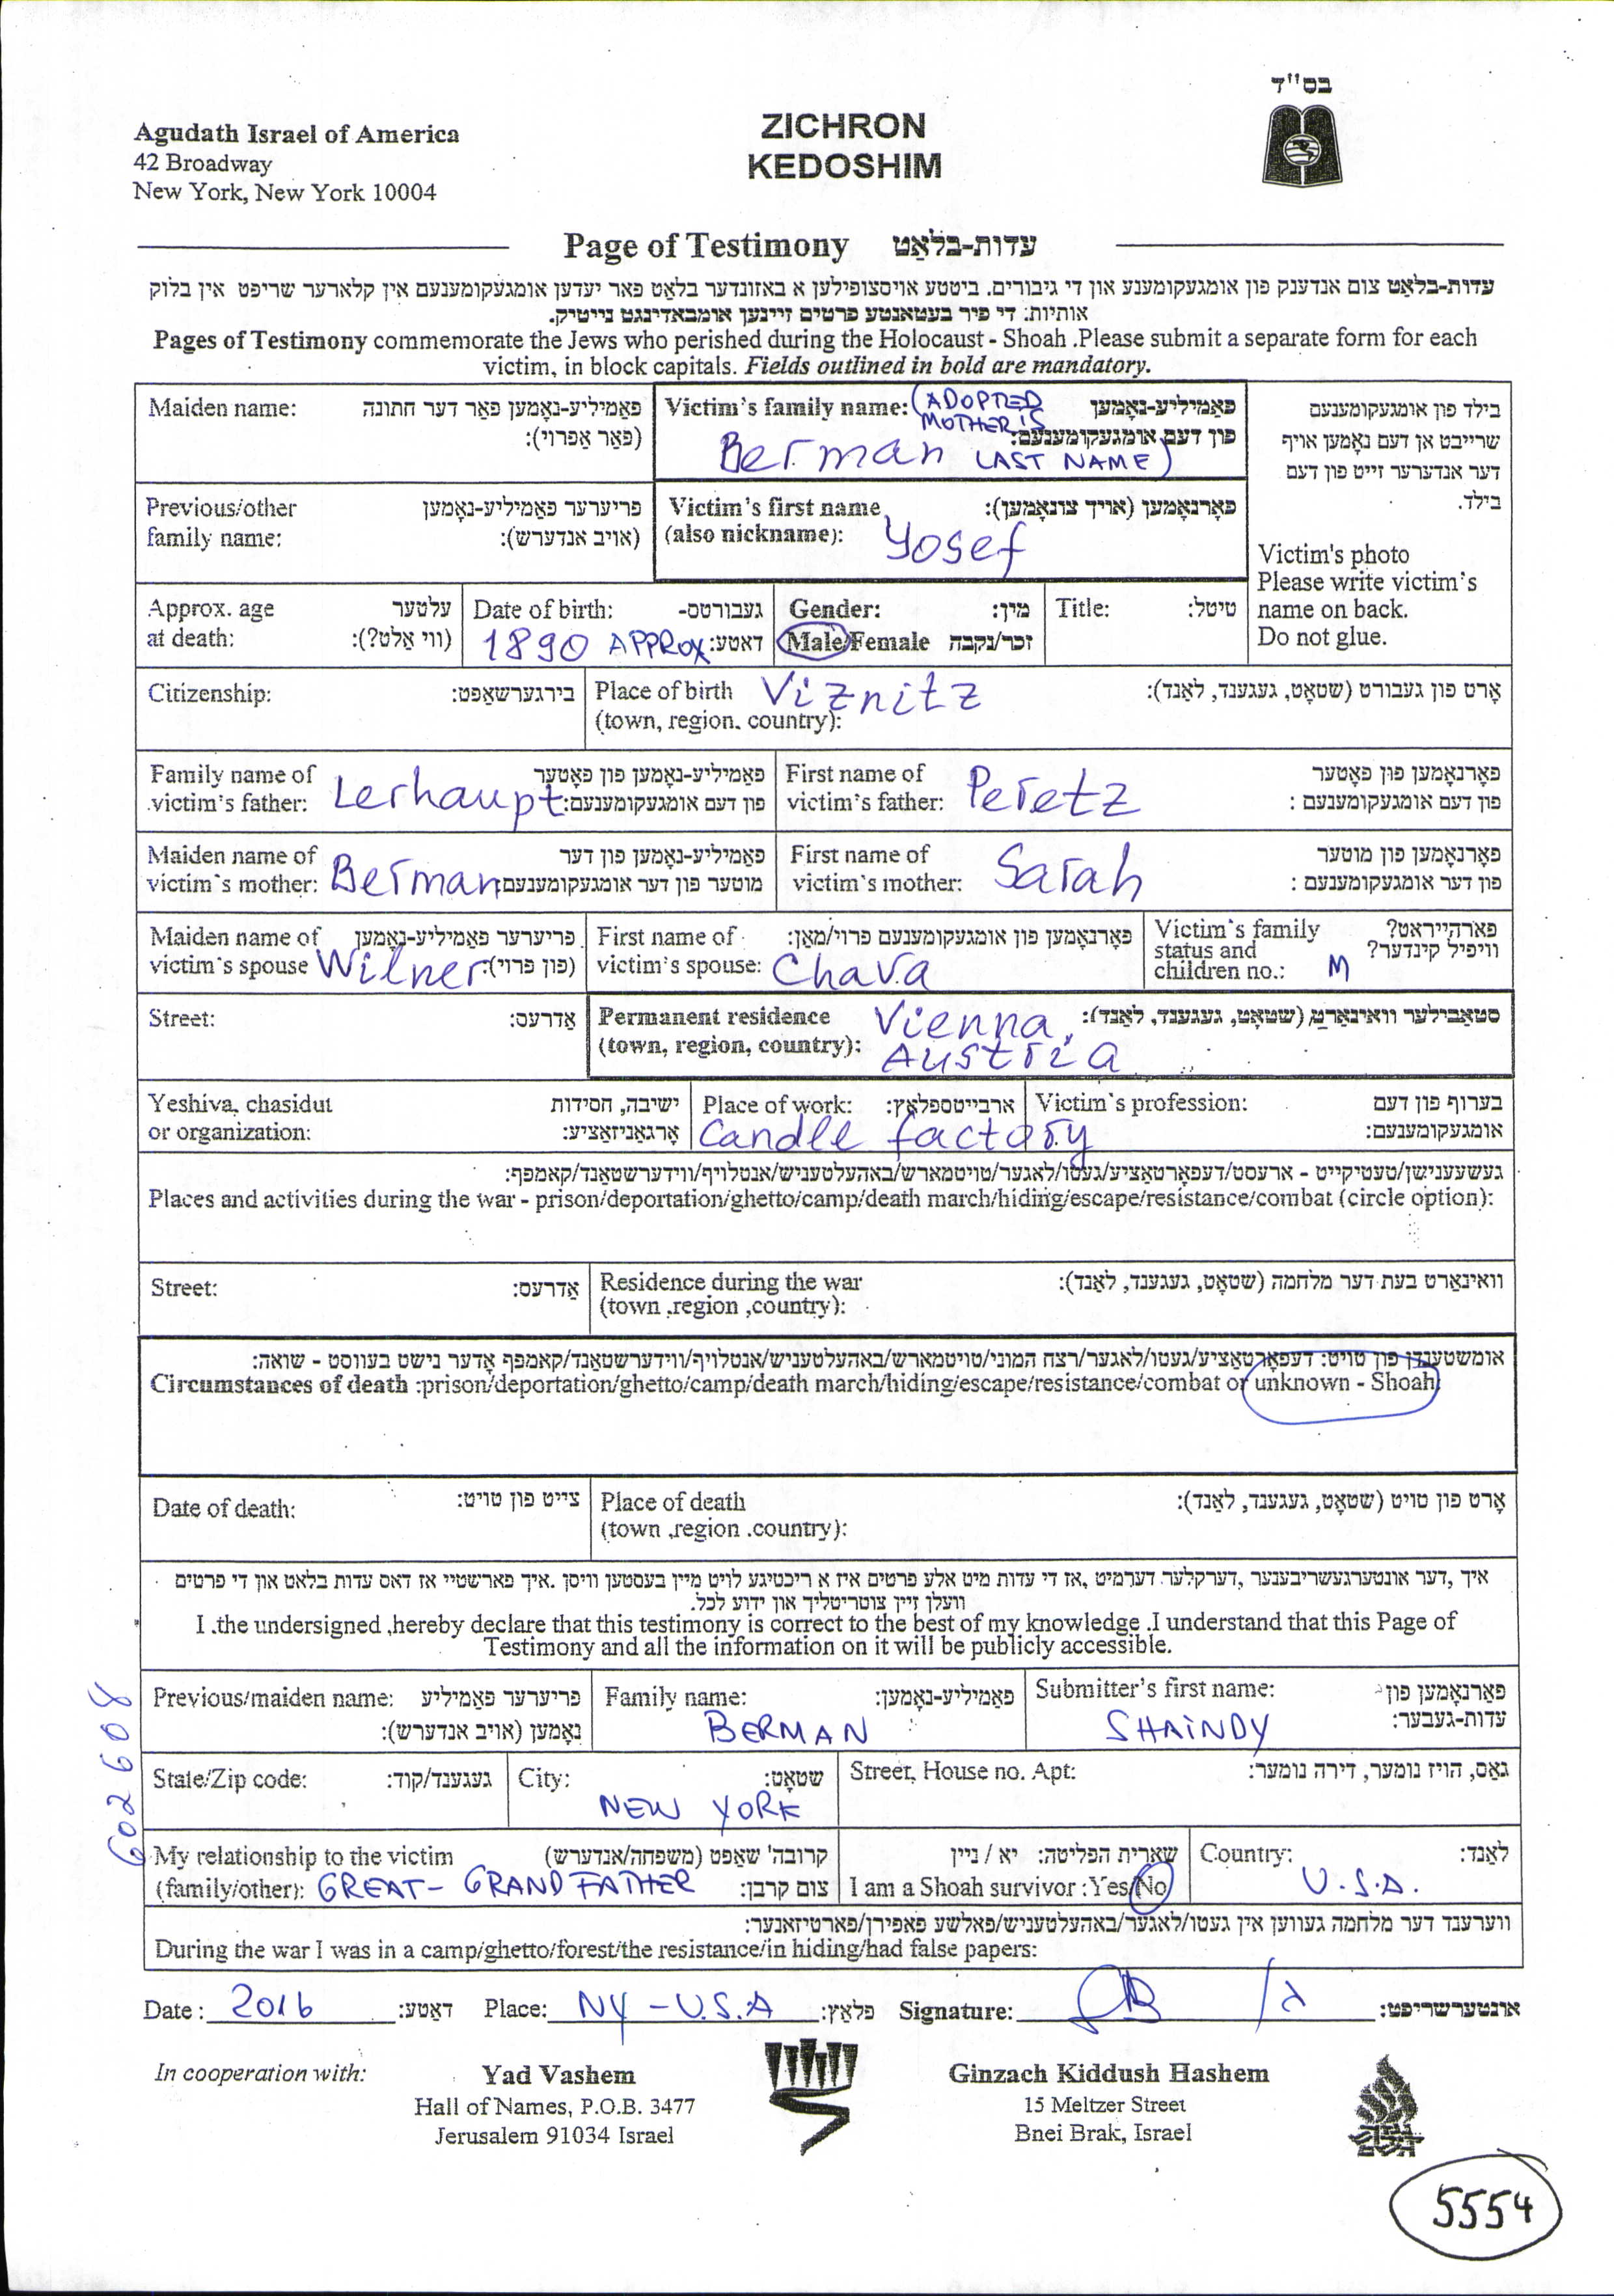 בס"ד
Agudath Israel of America
42 Broadway
New York, New York 10004
ZICHRON
KEDOSHIM
Page of Testimony עדות-בלאַט
עדות-בלאַט צום אנדענק פון אומגעקומענע און די גיבורים. ביטטע אויסצופילען א באזונדער בלאַט פאר יעדען אומגעקומענעם אין קלארער שריפט אין בלוק
אותיות: די פיר בעטאָנטע פרטים זיינען אומבאדינגט נייטיק.
Pages of Testimony commemorate the Jews who perished during the Holocaust - Shoah .Please submit a separate form for each
victim, in block capitals. Fields outlined in bold are mandatory.
Maiden name: פאַמיליע-נאָמען פאַר דער חתונה
(פאַר אַפרוי):
Victim's family name: (ADOPTED פאַמיליע-נאָמען
MOTHER'S
פון דעם אומגעקומענעם:
Berman LAST NAME)
בילד פון אומגעקומענעם
שרייבט אן דעם נאָמען אויף
דער אנדערער זייט פון דעם
בילד.
Victim's photo
Please write victim's
name on back.
Do not glue.
Previous/other פריערער פאַמיליע-נאָמען
family name: (אויב אנדערש):
Victim's first name פאָרנאָמען (אויך צונאָמען):
(also nickname): Yosef
Approx. age עלטער
at death: (ווי אַלט?):
Date of birth: געבורטס-
1890 APPROX דאטע:
Gender: מין:
Male/Female זכר/נקבה
Title: טיטל:
Citizenship: בירגערשאַפט:
Place of birth Viznitz אָרט פון געבורט (שטאָט, געגענד, לאַנד):
(town, region. country):
Family name of פאַמיליע-נאָמען פון פאָטער
victim's father: Lerhaupt פון דעם אומגעקומענעם:
First name of Peretz פאָרנאָמען פון פאָטער
victim's father: פון דעם אומגעקומענעם :
Maiden name of פאַמיליע-נאָמען פון דער
victim's mother: Berman מוטער פון דער אומגעקומענעם:
First name of Sarah פאָרנאָמען פון מוטער
victim's mother: פון דער אומגעקומענעם :
Maiden name of פריערער פאַמיליע-נאָמען
victim's spouse Wilner (פון פרוי):
First name of פאָרנאָמען פון אומגעקומענעם פרוי/מאַן:
victim's spouse: Chava
Victim's family פארהייראט?
status and וויפיל קינדער?
children no.: M
Street: אַדרעס:
Permanent residence Vienna, סטאַבילער וואינאָרט (שטאָט, געגענד, לאַנד):
(town, region, country): Austria
Yeshiva, chasidut ישיבה, חסידות
or organization: אָרגאַניזאַציע:
Place of work: ארבייטספלאַץ:
Candle factory
Victim's profession: בערוף פון דעם
אומגעקומענעם:
געשעענישן/טעטיקייט - ארעסט/דעפאָרטאַציע/געטו/לאַגער/טויטמארש/באהעלטעניש/אנטלויף/ווידערשטאַנד/קאמפף:
Places and activities during the war - prison/deportation/ghetto/camp/death march/hiding/escape/resistance/combat (circle option):
Street: אַדרעס:
Residence during the war וואינאָרט בעת דער מלחמה (שטאָט, געגענד, לאַנד):
(town ,region ,country):
אומשטענדן פון טויט: דעפאָרטאַציע/געטו/לאגער/רצח המוני/טויטמארש/באהעלטעניש/אנטלויף/ווידערשטאַנד/קאמפף אָדער נישט בעוואוסט - שואה:
Circumstances of death :prison/deportation/ghetto/camp/death march/hiding/escape/resistance/combat or unknown - Shoah
Date of death: צייט פון טויט:
Place of death אָרט פון טויט (שטאָט, געגענד, לאַנד):
(town ,region .country):
איך ,דער אונטערגעשריבענער ,דערקלער דערמיט ,אז די עדות מיט אלע פרטים איז א ריכטיגע לויט מיין בעסטען וויסן .איך פארשטיי אז דאס עדות בלאט און די פרטים
וועלן זיין צוטריטליך און ידוע לכל.
I .the undersigned ,hereby declare that this testimony is correct to the best of my knowledge .I understand that this Page of
Testimony and all the information on it will be publicly accessible.
Previous/maiden name: פריערער פאַמיליע
נאָמען (אויב אנדערש):
Family name: פאַמיליע-נאָמען:
BERMAN
Submitter's first name: פאַרנאָמען פון
SHAINDY עדות-געבער:
State/Zip code: געגענד/קוד:
City: שטאָט:
NEW YORK
Street, House no. Apt: גאַס, הויז נומער, דירה נומער:
My relationship to the victim קרובה' שאַפט (משפחה/אנדערש)
(family/other): GREAT-GRANDFATHER צום קרבן:
שארית הפליטה: יא / ניין
I am a Shoah survivor :Yes/No
Country: לאַנד:
U.S.A.
ווערענד דער מלחמה געווען אין געטו/לאַגער/באהעלטעניש/פאלשע פאפירן/פארטיזאנער:
During the war I was in a camp/ghetto/forest/the resistance/in hiding/had false papers:
Date : 2016 דאַטע: Place: NY - U.S.A פלאַץ: Signature: אונטערשריפט:
In cooperation with:
Yad Vashem
Hall of Names, P.O.B. 3477
Jerusalem 91034 Israel
Ginzach Kiddush Hashem
15 Meltzer Street
Bnei Brak, Israel
602608
5554